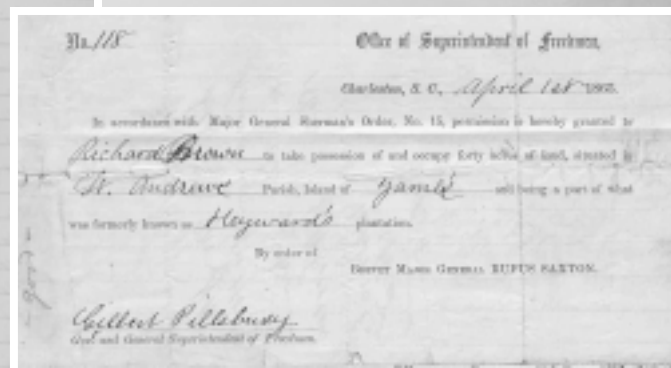 No. 118 Office of Superintendent of Freedmen,
Charleston, S. C., April 1st
In accordance with Major General Sherman's Order, No. 15, permission is hereby granted to
Richard Brown to take possession of and occupy forty acres of land, situated in
St. Andrews Parish, Island of James and being a part of what
was formerly known as Heyward's plantation.
By order of
BREVET MAJOR GENERAL RUFUS SAXTON.
Gilbert Pillsbury
Gen. and General Superintendent of Freedmen.